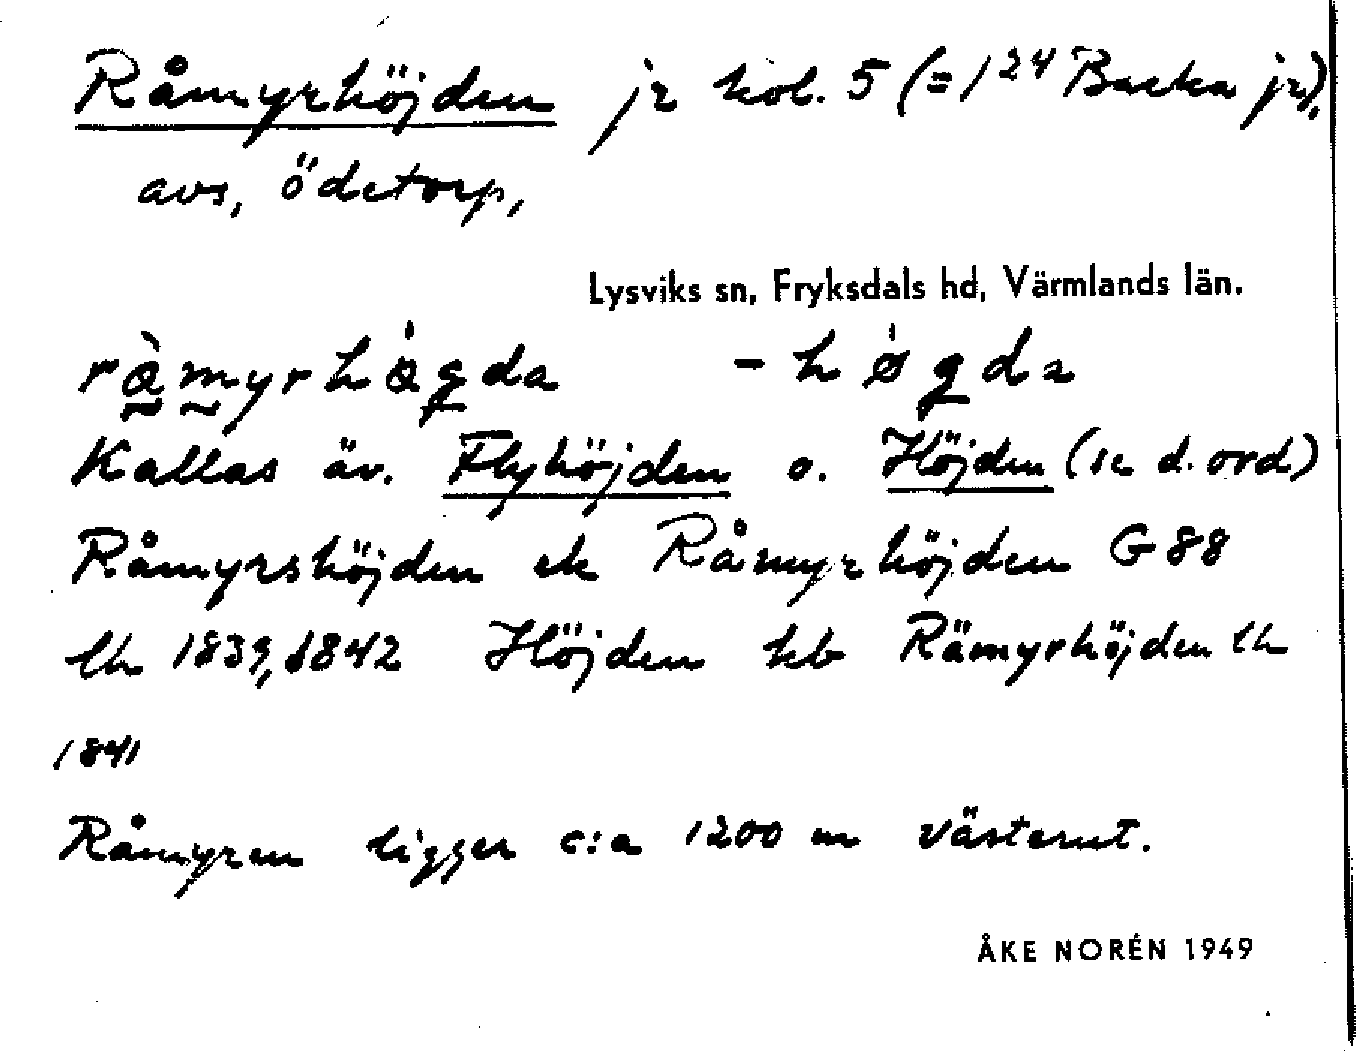 Råmyrhöjden jr kol. 5 (= 1²⁴ Backa jr),
avs, ödetorp,
Lysviks sn, Fryksdals hd, Värmlands län.
ràmyrhǻgda -hǿgda
Kallas äv. Flyhöjden o. Höjden (se d. ord)
Råmyrshöjden ek Råmyrhöjden G88
lh 1839, 1842 Höjden kb Rämyrhöjden lh
1841
Råmyren ligger c:a 1200 m västerut.
ÅKE NORÉN 1949